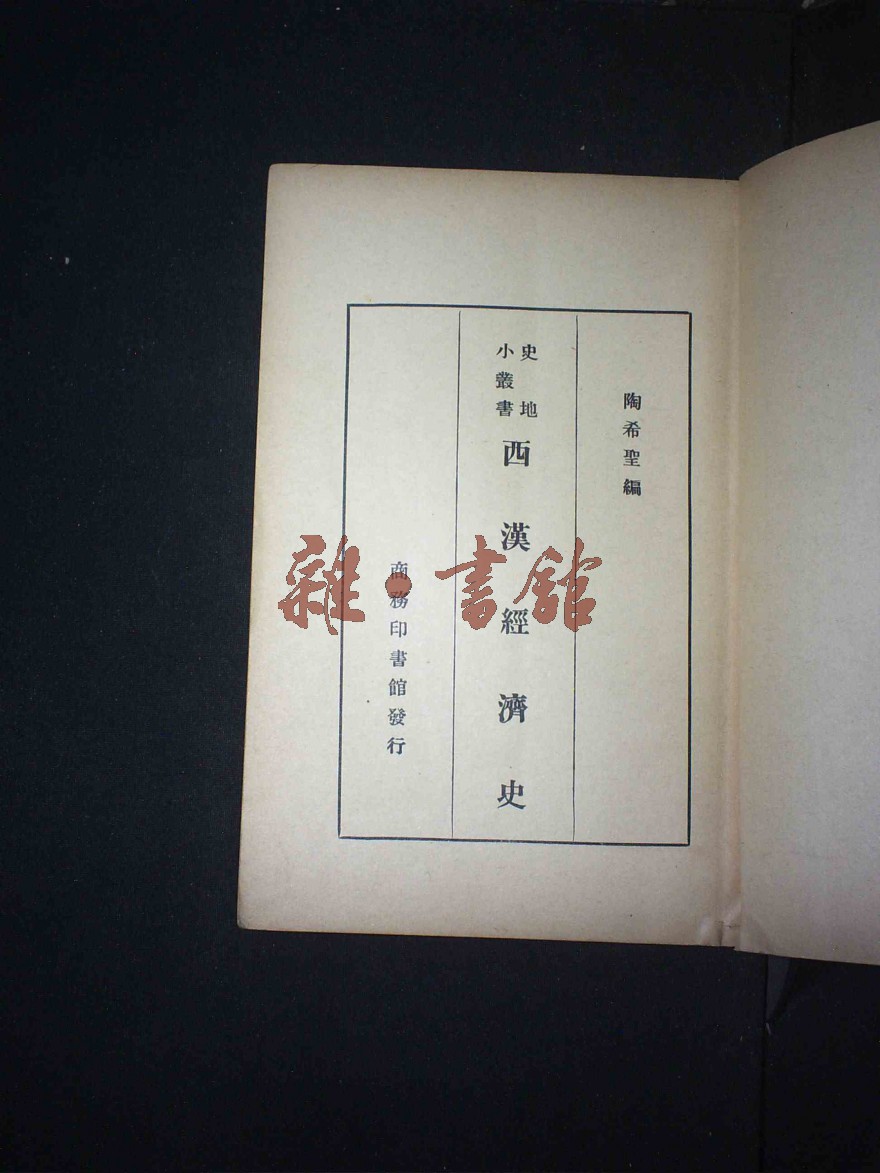 陶希聖編
史地
小叢書
西漢經濟史
商務印書館發行
雜·書館